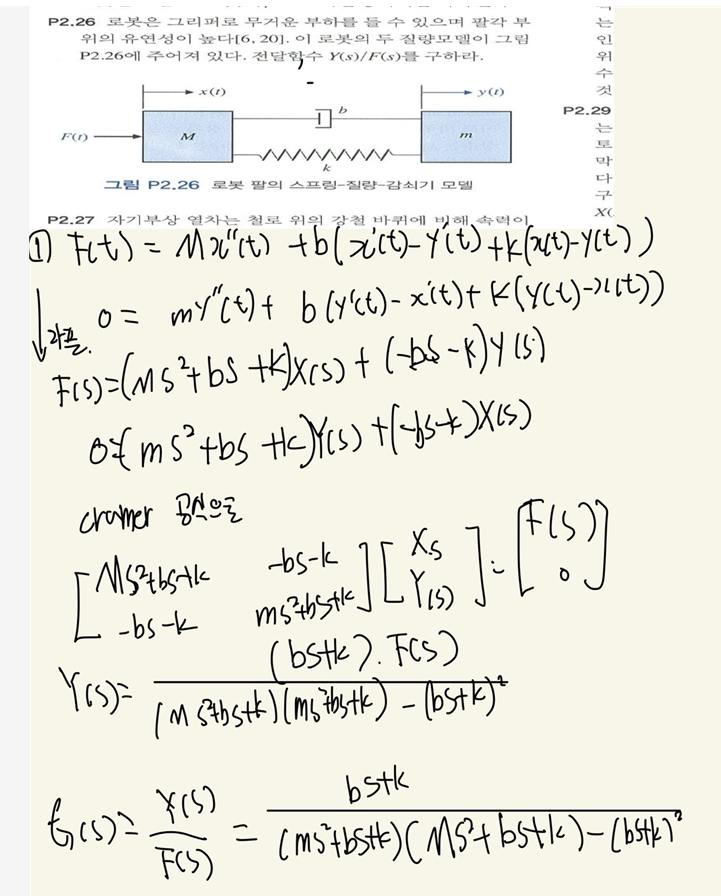 P2.26 로봇은 그리퍼로 무거운 부하를 들 수 있으며 팔각 부
위의 유연성이 높다[6, 20]. 이 로봇의 두 질량모델이 그림
P2.26에 주어져 있다. 전달함수 Y(s)/F(s)를 구하라.
x(t)
y(t)
F(t)
M
b
m
k
그림 P2.26 로봇 팔의 스프링-질량-감쇠기 모델
P2.27 자기부상 열차는 철로 위의 강철 바퀴에 비해 속력이
는
인
위
수
것
P2.29
는
토
막
다
구
X(
① F(t) = Mx''(t) + b(x'(t)-y'(t)+k(x(t)-y(t))
↓라플.
0 = my''(t)+ b(y'(t)-x'(t)+k(y(t)-x(t))
F(s)=(Ms²+bs+k)X(s)+(-bs-k)Y(s)
0=(ms²+bs+k)Y(s)+(-bs-k)X(s)
cramer 공식으로
[Ms²+bs+k -bs-k] [Xs] = [F(s)]
[-bs-k ms²+bs+k] [Y(s)] [0]
Y(s)= (bs+k).F(s) / (Ms²+bs+k)(ms²+bs+k)-(bs+k)²
G(s)= Y(s)/F(s) = bs+k / (ms²+bs+k)(Ms²+bs+k)-(bs+k)²